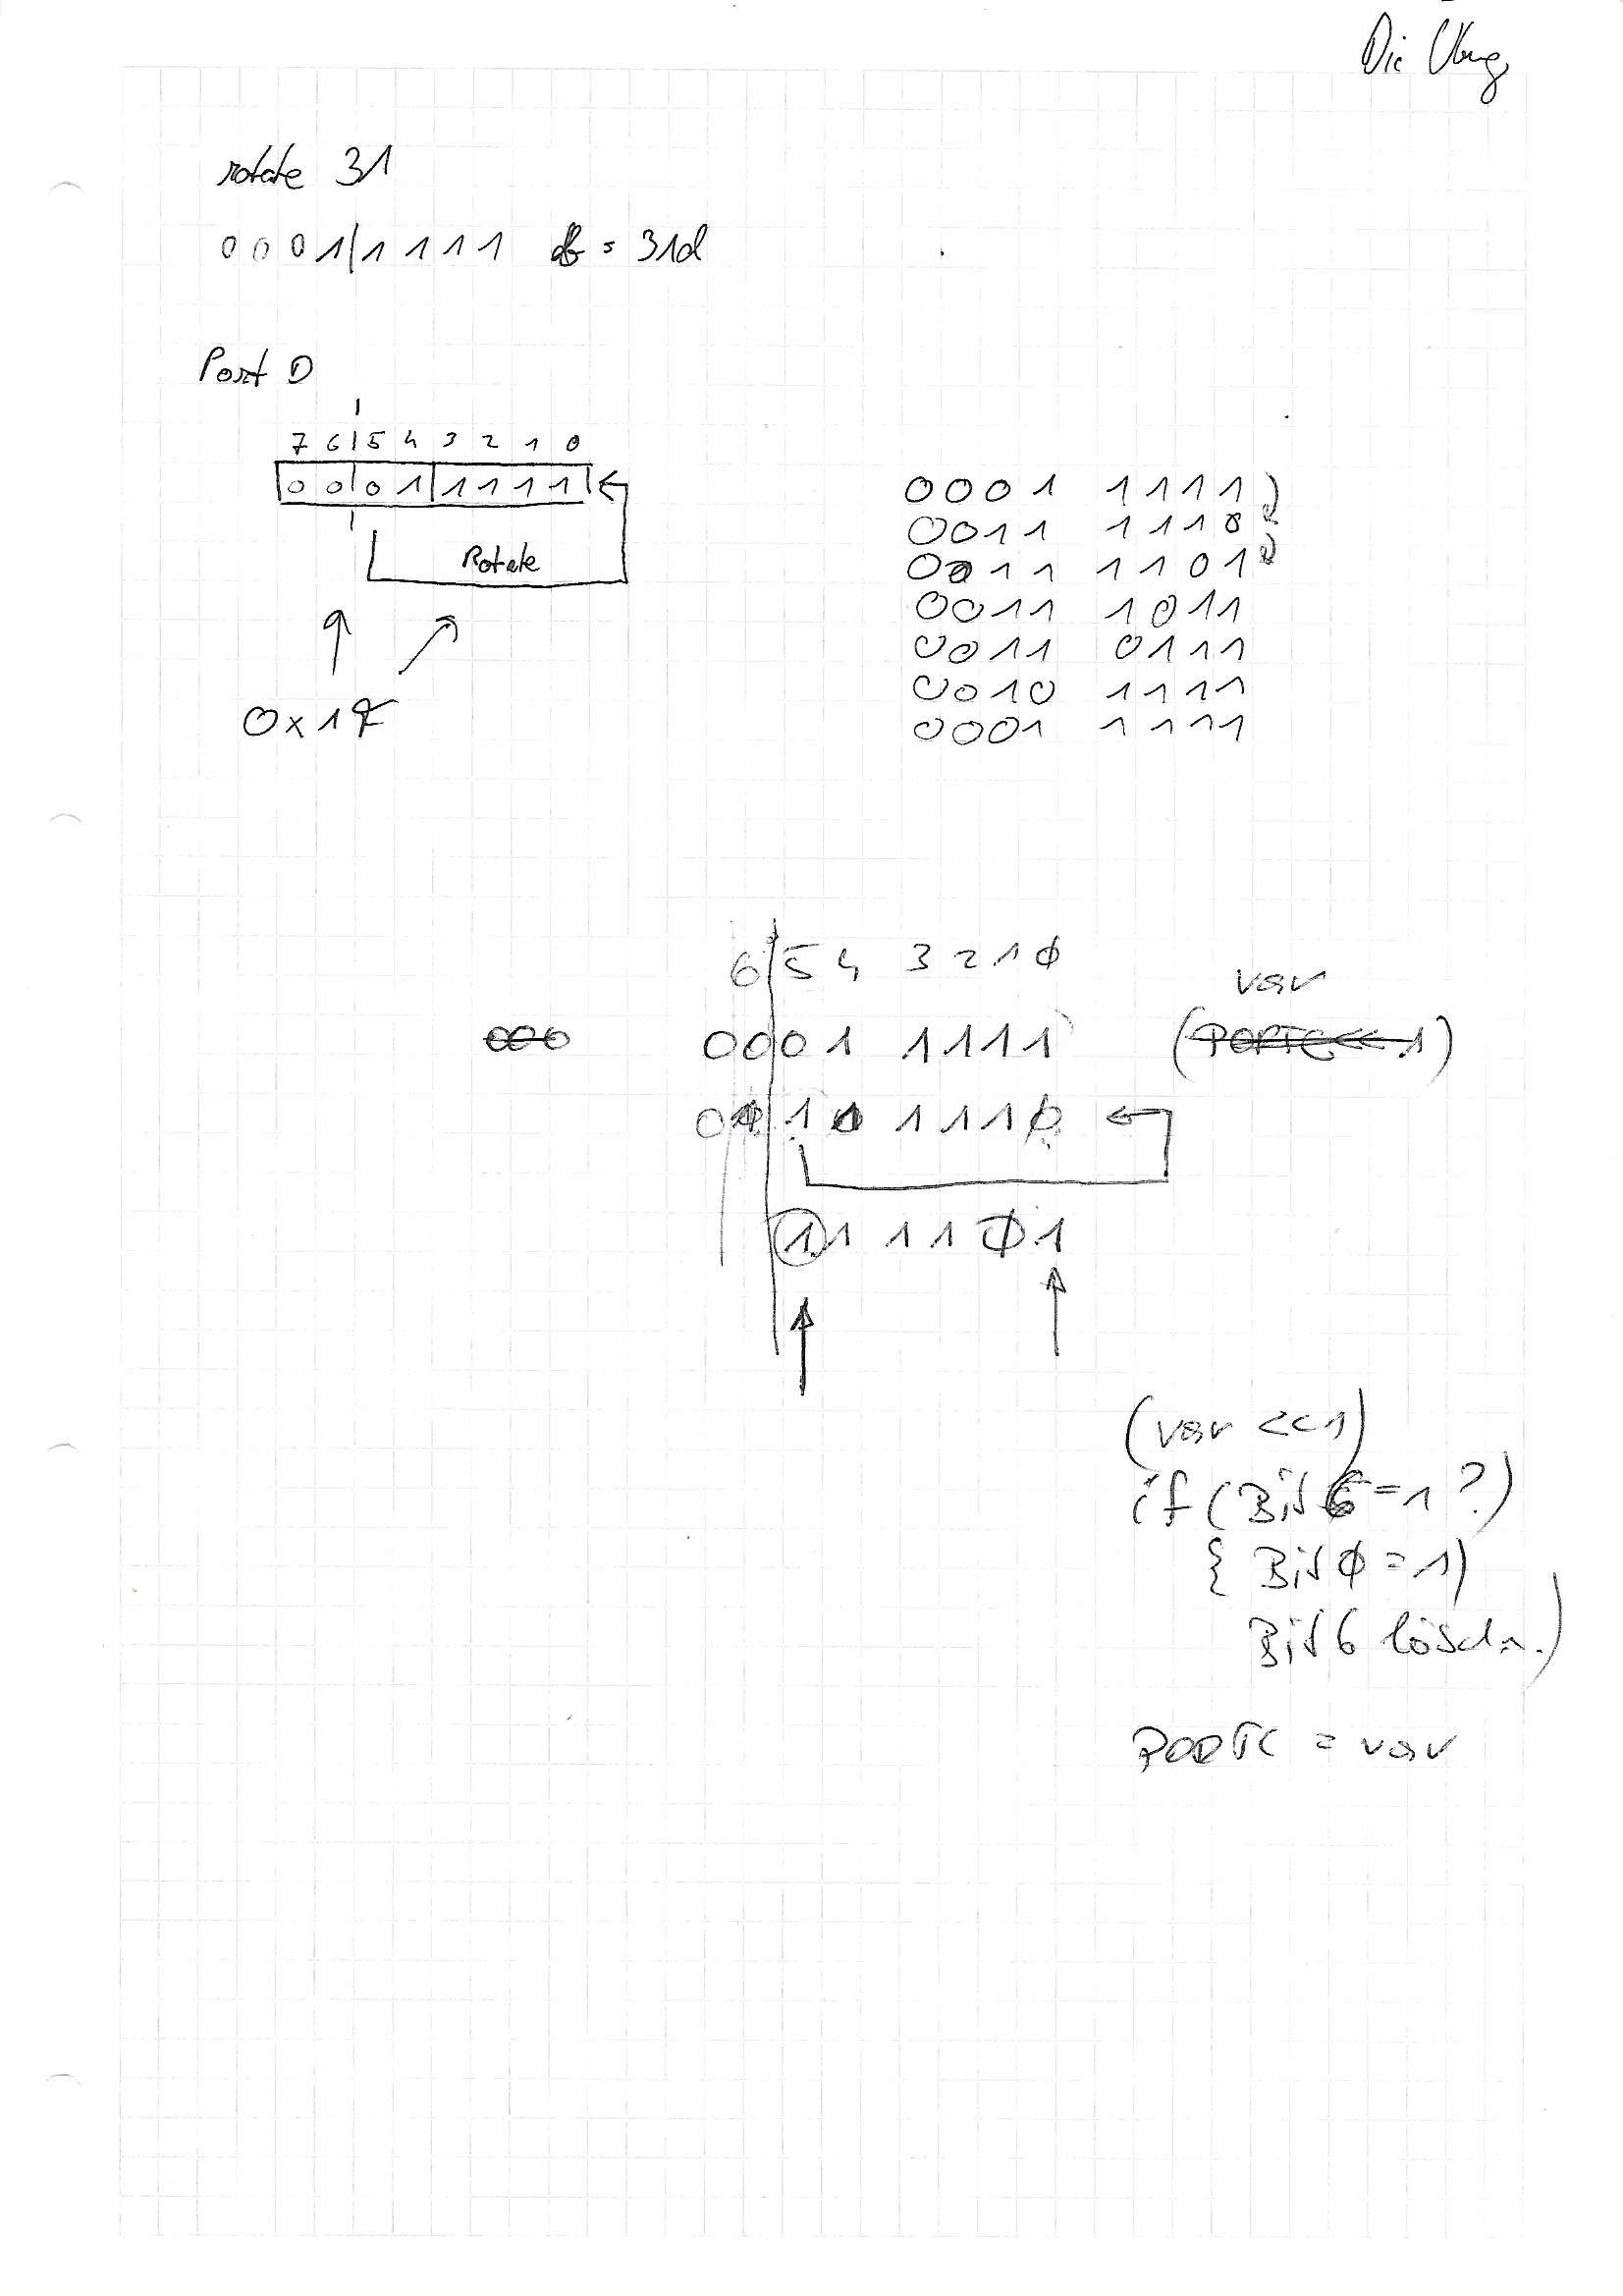 Die Übung
rotate 31
0001|1111 b = 31d
Port D
7 6 5 4 3 2 1 0
0 0 0 1 1 1 1 1
Rotate
0x1F
0001 1111
0011 1110
0011 1101
0011 1011
0011 0111
0010 1111
0001 1111
6 5 4 3 2 1 0
var
000
0001 1111
(PORTC<<1)
1 1 1 1 0
1 1 1 1 0 1
(var <<1)
if (Bit 6 = 1 ?)
{ Bit 0 = 1)
Bit 6 löschen.)
PORTC = var